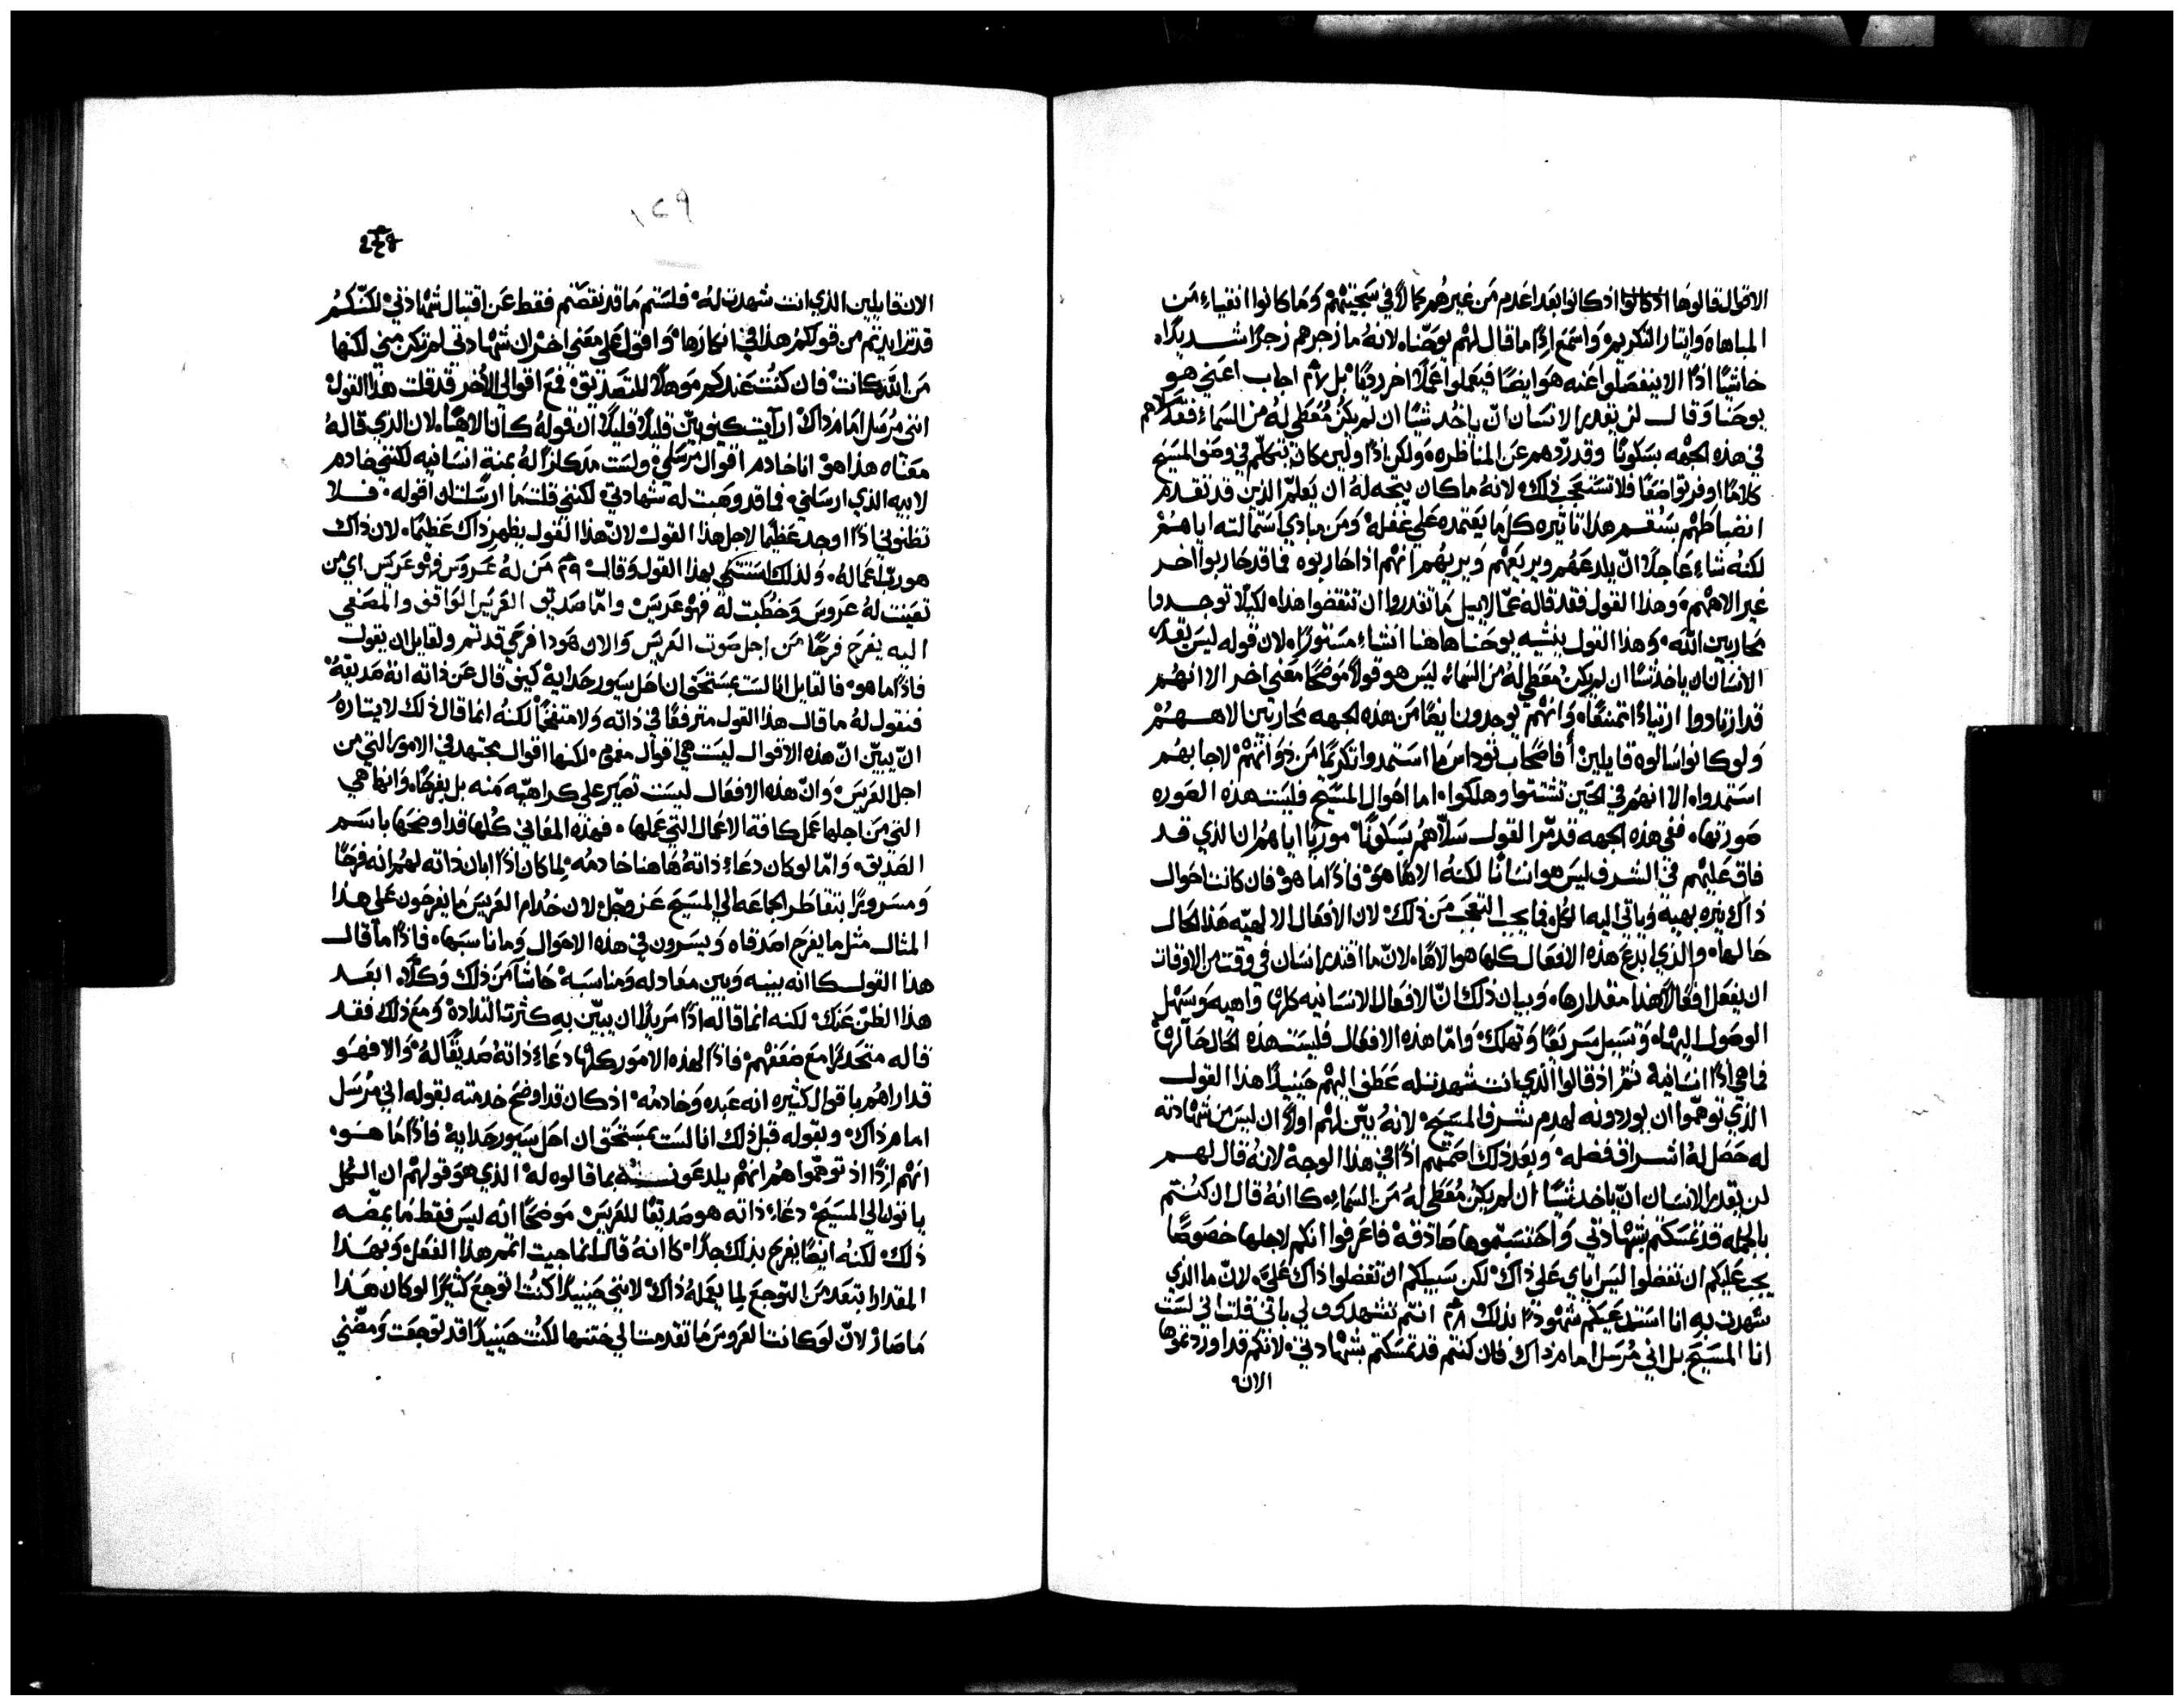 الاقوال قالوها اذ كانوا بعد اعدم من غيرهم كمالاً في سجيتهم وما كانوا انقياء من
المباهاه وايثار التكريم واسمع اذًا ما قال لهم يوحنا لانه ما زجرهم زجرًا شديدًا
خاشيًا اذًا الا ينفصلوا عنه هو ايضًا فيعملوا عملاً اخر رديًا بل اجاب اعني هو
يوحنا وقال لن يقدر الانسان ان ياخد شيًا ان لم يكن مُعطي له من السماء فقد
في هذه الجهه بسكون وقد ردهم عن المناظره ولكن اذًا ولين كان يتكلم في وصف المسيح
كلامًا اوفر تواضعًا فلا تستعجب ذلك لانه ما كان يتجه له ان يعلم الذين قد تقدم
لكنه شاء عاجلاً ان يلدعهم ويريعهم ويريهم انهم اذا حاربوه فما قد حاربوا اخر
غير الاههم وهذا القول فقد قاله غمالاييل ما تقدروا ان تنقضوا هذا لكيلا توجدوا
محاربين الله وهذا القول ينشيه يوحنا هاهنا انشاء مستورًا لان قوله ليس يقدر
الانسان ان ياخذ شيًا ان لم يكن مُعطي له من السماء ليس هو قولاً موضحًا معني اخر الا انهم
قد ازدادوا وانهم يوجدون ايضًا من هذه الجهه محاربين الاههم
ولو كانوا سالوه قايلين افاصحاب توداس ما استمدوا تكرمًا من ذواتهم لاجابهم
استمدوا الا انهم في الحين تشتتوا وهلكوا اما احوال المسيح فليست هذه الصوره
صورتها ففي هذه الجهه قد مرر القول سلاهم بسكون موريًا اياهم ان الذي قد
فاق عليهم في الشرف ليس هو انسانًا لكنه الاهًا هو فاذًا ما هو فان كانت احوال
ذاك نيره بهيه وياتي اليه الكل فما يجب التعجب من ذلك لان الافعال الالهيه هذا الحال
حالها والذي ابدع هذه الافعال كلها هو الاهًا لان ما اقتدر انسان في وقت من الاوقات
ان يفعل افعالاً هذا مقدارها وبيان ذلك ان الافعال الانسانيه كلها واهيه وسهل
الوصول اليها وتسيل سريعًا وتهلك واما هذه الافعال فليست هذه الحال حالها
فما هي اذًا انسانية ثم اذ قالوا الذي انت شهدت له عطف اليهم حينيذًا هذا القول
الذي توهموا ان يوردونه لهدم شرف المسيح لانه بين لهم اولاً ان ليس من شهادته
له حصل له اشراف فضله وبعد ذلك اصمتهم اذًا في هذا الوجه لانه قال لهم
لن يقدر الانسان ان ياخد شيًا ان لم يكن مُعطي له من السماء كاانه قال ان كنتم
بالجمله قد تمسكتم بشهادتي واحتسبتموها صادقه فاعرفوا انكم لاجلها خصوصًا
يجب عليكم ان تفضلوا ليس اياي علي ذاك لكن سبيلكم ان تفضلوا ذاك علي لان ما الذي
شهدت به انا استدعيكم شهودًا بذلك انتم تشهدون لي باني قلت اني لست
انا المسيح بل اني مُرسل امام ذاك فان كنتم قد تمسكتم بشهادتي لانكم قد اوردتموها
الان
١٤٩
الان قايلين الذي انت شهدت له فلستم ما قد نقصتم فقط عن اقتبال شهادتي لكنكم
قد تزايدتم من قولكم هذا في انكارها واقول علي معني اخر ان شهادتي لم تكن مني لكنها
من الله كانت فان كنت عندكم موهلاً للتصديق فمع اقوالي الأخر قد قلت هذا القول
انني مُرسل امام ذاك ارآيت كيف يبين قليلاً قليلاً ان قوله كان الاهيًا لان الذي قاله
معناه هذا هو انا خادم اقوال مرسلي ولست له بمنة انسانيه لكنني خادم
لابيه الذي ارسلني فما قد وهبت له شهادتي لكنني قلت ما ارسلت ان اقوله فلا
تظنوني اذًا اوجد عظيمًا لاجل هذا القول لان هذا القول يظهر ذاك عظيمًا لان ذاك
هو رب اعماله ولذلك بهذا القول وقال من له عروس فهو عريس اي من
تعينت له عروس وخُطبت له فهو عريس واما صديق العريس الواقف والمصغي
اليه يفرح فرحًا من اجل صوت العريس والان هوذا فرحي قد تم ولقايل ان يقول
فاذًا ما هو فالقايل انا لست بمستحق ان احل سيور حدايه كيف قال عن ذاته انه صديقه
فنقول له ما قال هذا القول مترفعًا في ذاته ولا متفخمًا لكنه انما قال ذلك لايثاره
ان يبين ان هذه الاقوال ليست هي اقوال لكنها اقوال مجتهد في الامور التي من
اجل العريس وان هذه الافعال ليست تصير علي كراهيه منه بل يفرحًا وانها هي
التي من اجلها عمل كافة الاعمال التي عملها فهذه المعاني كلها قد اوضحها باسم
الصديق واما لو كان دعاء ذاته هاهنا خادمه لما كان اذًا ابان ذاته لهم انه فرحًا
ومسرورًا بتقاطر الجماعه الي المسيح لان خُدام العريس ما يفرحون علي هذا
المثال مثل ما يفرح اصدقاه ويسرون في هذه الاحوال وما ناسبها فاذًا ما قال
هذا القول كاانه بينه وبين معادله ومناسبه حاشا من ذلك وكلا ابعد
هذا الظن عنك لكنه انما قاله اذًا مريدًا ان يبين به كثرت التلاده ومع ذلك فقد
قاله متحدرًا مع ضعفهم فاذًا لهذه الامور كلها دعاء ذاته صديقًا له والا فهو
قد اراهم باقوال كثيره انه عبده وخادمه اذ كان قد اوضح خدمته بقوله اني مُرسل
امام ذاك وبقوله قبل ذلك انا لست بمستحق ان احل سيور حدايه فاذًا ما هو
انهم اذًا اذ توهموا هم انهم يلدعونه بما قالوه له الذي هو قولهم ان الكل
ياتون الي المسيح دعاء ذاته هو صديقًا للعريس موضحًا انه ليس فقط ما يمضه
ذلك لكنه ايضًا يفرح بذلك جدًا كاانه قال انما جيت اتمم هذا الفعل وبهذا
المقدار ابتعد من التوجع لما يعمله ذاك لانني حينيذًا كنت اتوجع كثيرًا لو كان هذا
ما صار لان لو كانت العروس ما تقدمت الي ختنها لكنت حينيذًا قد توجعت ومضني